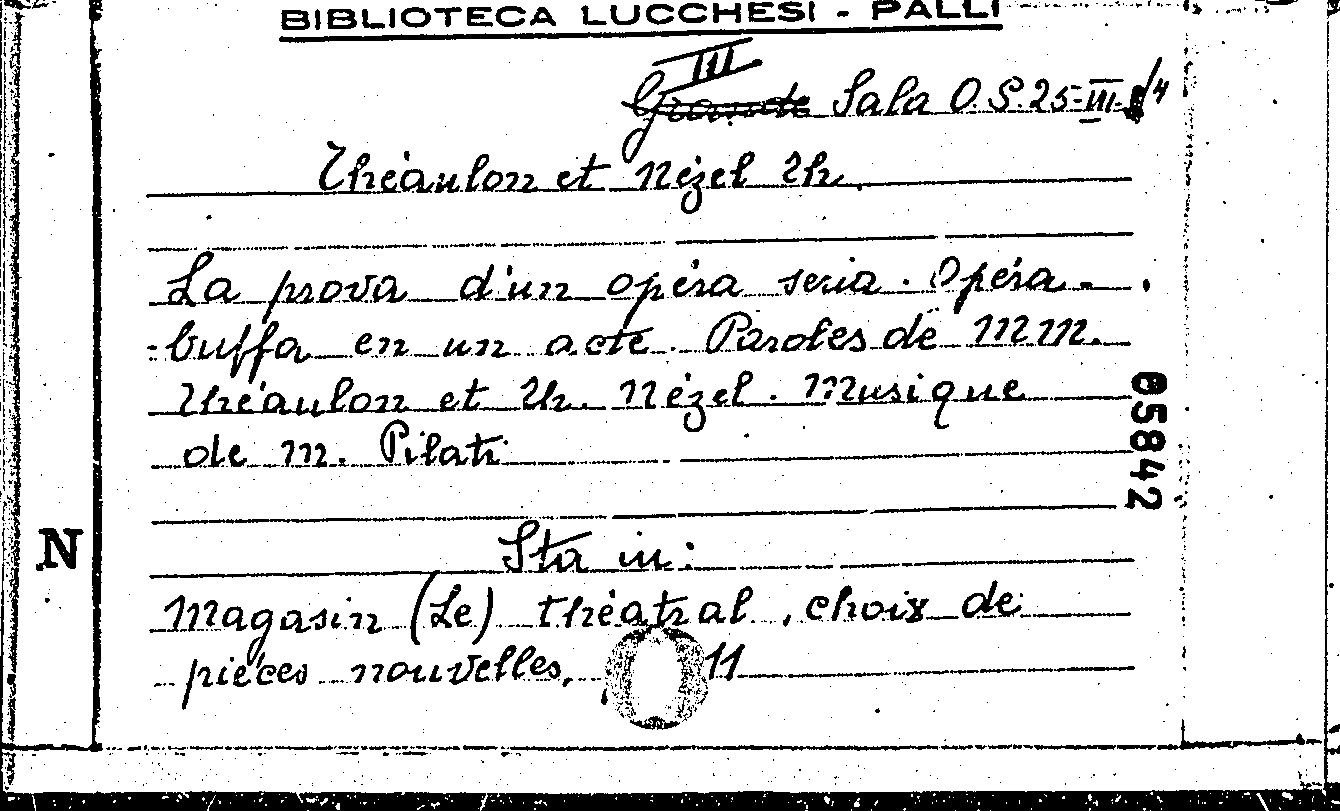 BIBLIOTECA LUCCHESI - PALLI
III
Grande Sala O.S. 25-III-/4
Théaulon et Nézel Th.
La prova d'un opéra seria. Opéra-
-buffa en un acte. Paroles de MM.
Théaulon et Th. Nézel. Musique
de M. Pilati
05842
N
Sta in:
Magasin (Le) théatral, choix de
pièces nouvelles, 11